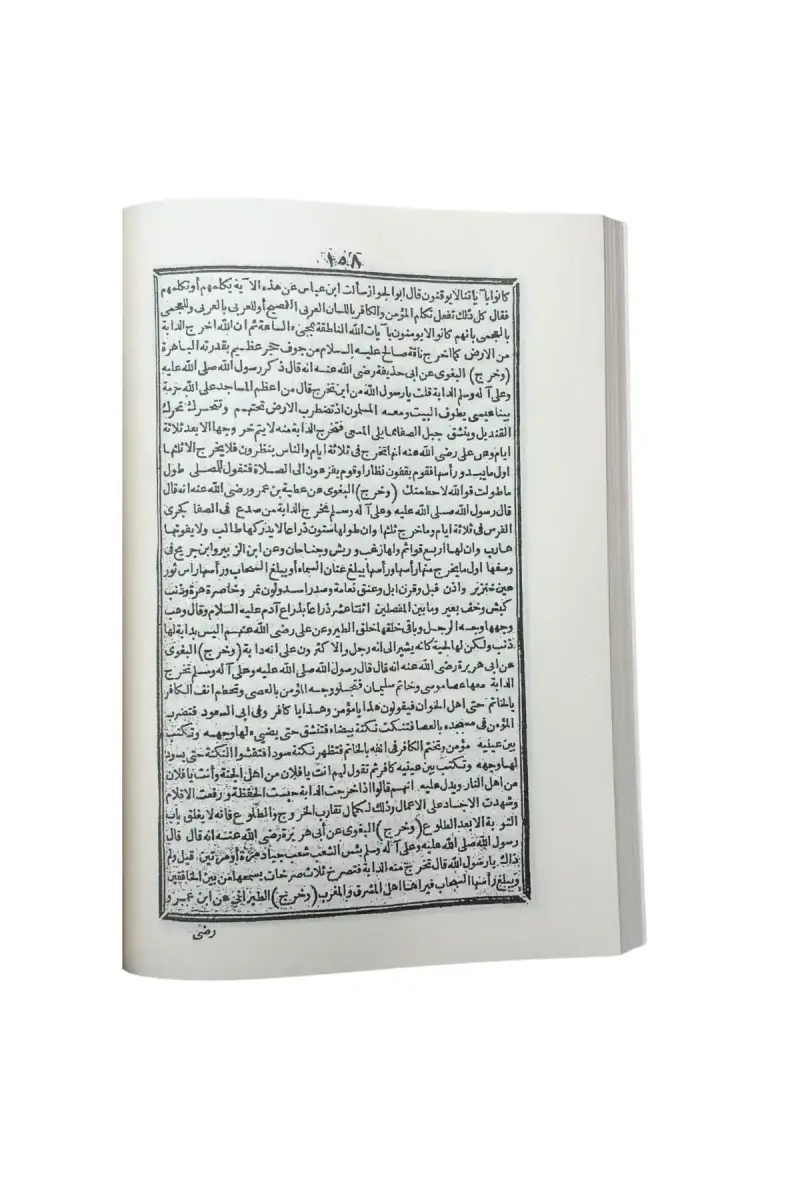 ١٥٨
كانوا بآياتنا لا يوقنون قال ابوالجواز سألت ابن عباس عن هذه الآية يكلمهم أو تكلمهم
فقال كل ذلك تفعل تكلم المؤمن والكافر باللسان العربى الفصيح أو للعربى بالعربى وللعجمى
بالعجمى بانهم كانوا لا يومنون بآيات الله الناطقة بمجىء الساعة ثم ان الله اخرج الدابة
من الارض كما اخرج ناقة صالح عليه السلام من جوف حجر عظيم بقدرته الباهرة
(وخرج) البغوى عن ابى حذيفة رضى الله عنه انه قال ذكر رسول الله صلى الله عليه
وعلى آله وسلم الدابة قلت يا رسول الله من اين تخرج قال من اعظم المساجد على الله حرمة
بينا عيسى يطوف البيت ومعه المسلمون اذ تضطرب الارض تحتهم وتتحرك تحرك
القنديل وينشق جبل الصفا مما يلى المسعى فتخرج الدابة منه لا يتم خروجها الا بعد ثلاثة
ايام وعن على رضى الله عنه انها تخرج فى ثلاثة ايام والناس ينظرون فلا يخرج الا ثلثها
اول ما يبدو رأسها فقوم يقفون نظارا وقوم يفزعون الى الصلاة فتقول للمصلى طول
ما طولت فو الله لاحطمنك (وخرج) البغوى عن عطية بن عمرو رضى الله عنه انه قال
قال رسول الله صلى الله عليه وعلى آله وسلم تخرج الدابة من صدع فى الصفا كجرى
الفرس فى ثلاثة ايام وما خرج ثلثها وان طولها ستون ذراعا لا يدركها طالب ولا يفوتها
هارب وان لها اربع قوائم ولها زغب وريش وجناحان وعن ابن الزبير وابن جريج فى
وصفها اول ما يخرج منها رأسها ورأسها يبلغ عنان السماء أو يبلغ السحاب ورأسها راس ثور
عين خنزير واذن فيل وقرن ابل وعنق نعامة وصدر اسد ولون نمر وخاصرة هرة وذنب
كبش وخف بعير وما بين المفصلين اثنتا عشر ذراعا بذراع آدم عليه السلام وقال وهب
وجهها وجه الرجل وباقى خلقها خلق الطير وعن على رضى الله عنهم اليس بدابة لها
ذنب ولكن لها لحية كانه يشير الى انه رجل والاكثرون على انه دابة (وخرج) البغوى
عن ابى هريرة رضى الله عنه انه قال قال رسول الله صلى الله عليه وعلى آله وسلم تخرج
الدابة معها عصا موسى وخاتم سليمان فتجلو وجه المؤمن بالعصى وتحطم انف الكافر
بالخاتم حتى اهل الخوان فيقولون هذا يا مؤمن وهذا يا كافر وفى ابى السعود فتضرب
المؤمن فى مسجده بالعصا فتنكت نكتة بيضاء فتنشق حتى يضىء لها وجهه وتكتب
بين عينيه مؤمن وتختم الكافر فى انفه بالخاتم فتظهر نكتة سودا فتقشوا النكتة حتى يسود
لها وجهه وتكتب بين عينيه كافر ثم تقول لهم انت يا فلان من اهل الجنة وأنت يا فلان
من اهل النار ويدل عليه انهم قالوا اذا خرجت الدابة حبست الحفظة ورفعت الاقلام
وشهدت الاجساد على الاعمال وذلك لكمال تقارب الخروج والطلوع فانه لا يغلق باب
التوبة الا بعد الطلوع (وخرج) البغوى عن أبى هريرة رضى الله عنه انه قال قال
رسول الله صلى الله عليه وعلى آله وسلم بئس الشعب شعب جياد مرة أو مرتين قيل ولم
ذاك يا رسول الله قال تخرج منه الدابة فتصرخ ثلاث صرخات يسمعها من بين الخافقين
ويبلغ رأسها السحاب فيراها اهل المشرق والمغرب (وخرج) الطبرانى عن ابن عمرو
رضى